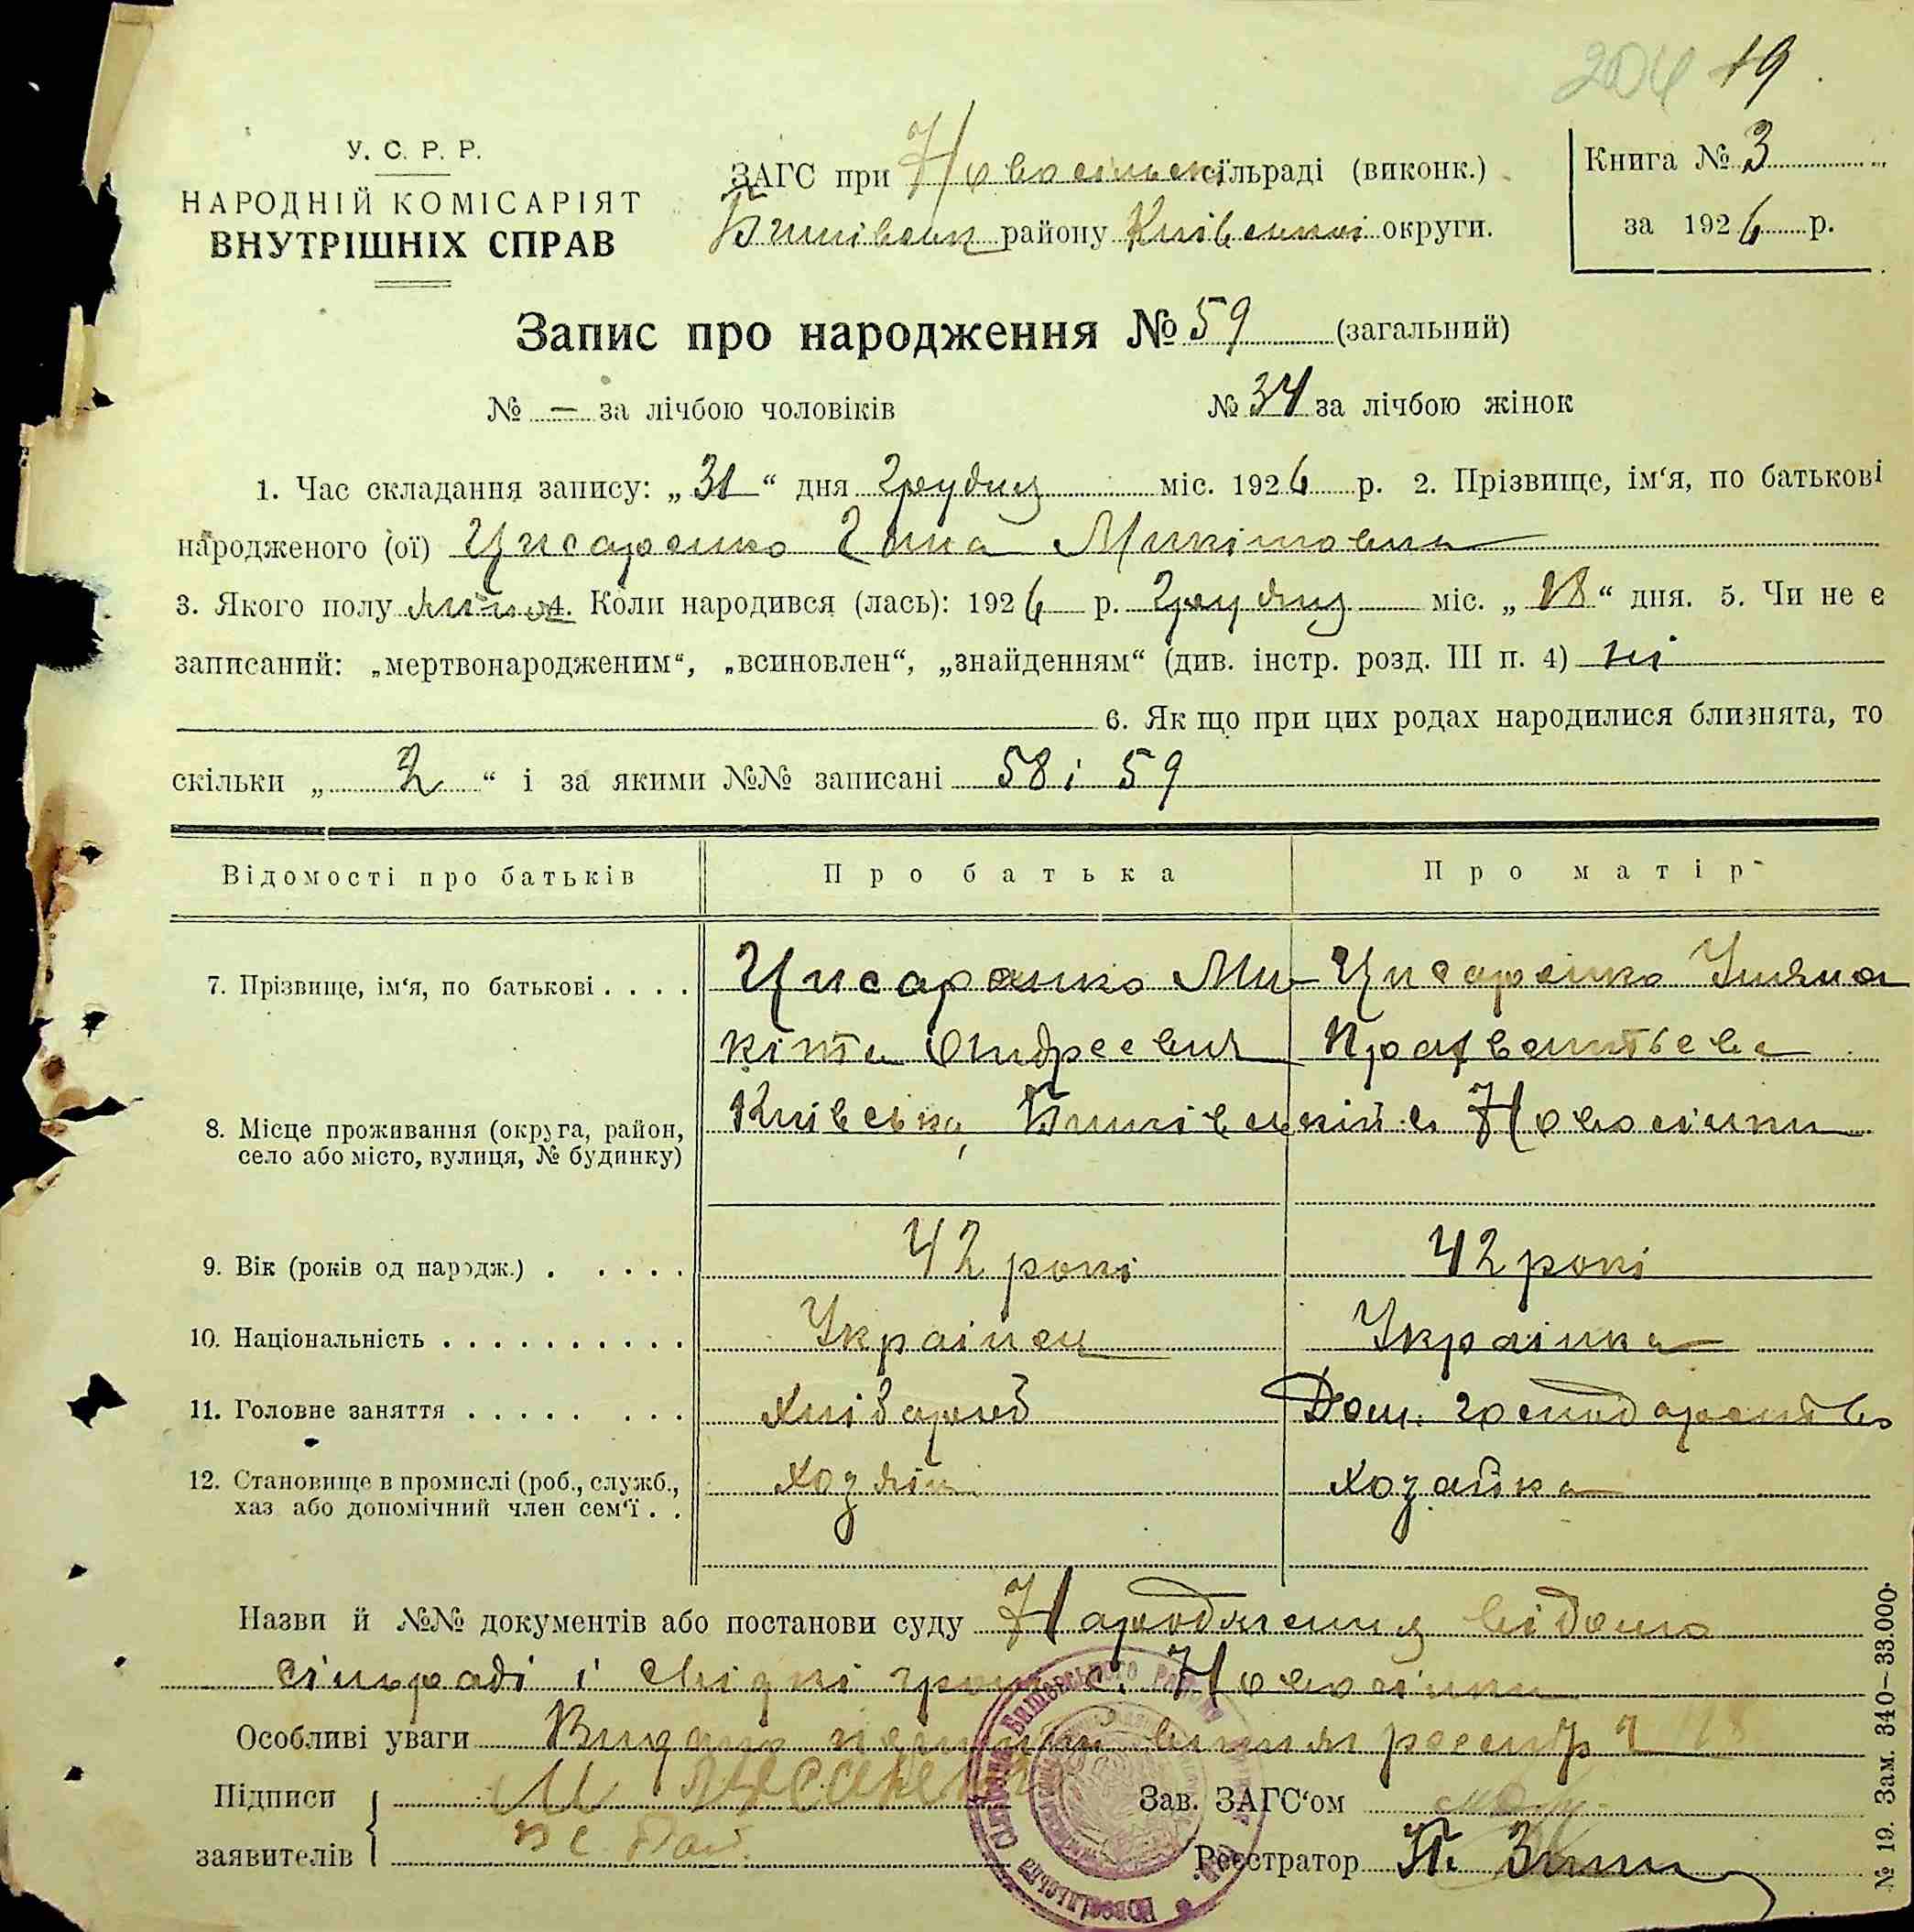 204 19
У. С. Р. Р.
НАРОДНІЙ КОМІСАРІЯТ
ВНУТРІШНІХ СПРАВ
ЗАГС при Новосілкі сільраді (виконк.)
району Київської округи.
Книга № 3
за 1926 р.
Запис про народження № 59 (загальний)
№ — за лічбою чоловіків
№ 34 за лічбою жінок
1. Час складання запису: „31“ дня грудня міс. 1926 р. 2. Прізвище, ім‘я, по батькові
народженого (ої) Цисаренко Микітовна
3. Якого полу жіноч 4. Коли народився (лась): 1926 р. грудня міс. „18“ дня. 5. Чи не є
записаний: „мертвонародженим“, „всиновлен“, „знайденням“ (див. інстр. розд. III п. 4) ні
6. Як що при цих родах народилися близнята, то
скільки „ 2 “ і за якими №№ записані 58 і 59
Відомості про батьків Про батька Про матір
7. Прізвище, ім‘я, по батькові . . . . Цисаренко Ми- Цисаренко Уляна
кіта Андреевич
8. Місце проживання (округа, район, Київська, с. Новосілки
село або місто, вулиця, № будинку)
9. Вік (років од народж.) . . . . . 42 рокі 42 рокі
10. Національність . . . . . . . . . . Українец Українка
11. Головне заняття . . . . . . . . Хлібороб Дом. господарство
12. Становище в промислі (роб., служб., Хозяін Хозайка
хаз або допомічний член сем‘ї . .
Назви й №№ документів або постанови суду Народження відомо
сільраді і свідкі гром. с. Новосілки
Особливі уваги Видано
Підписи
заявителів
Зав. ЗАГС‘ом
Реєстратор
№ 19. Зам. 340–33.000.